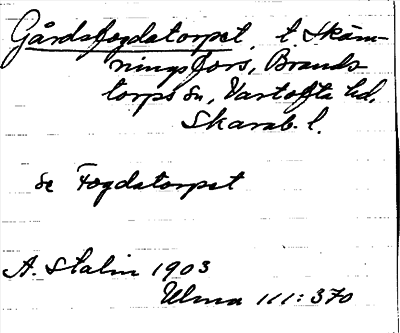 Gårdsfogdatorpet, t. Skäm-
ningsfors, Brands
torps sn, Vartofta hd,
Skarab. l.
se Fogdatorpet
A. Stalin 1903
Ulma 111:370